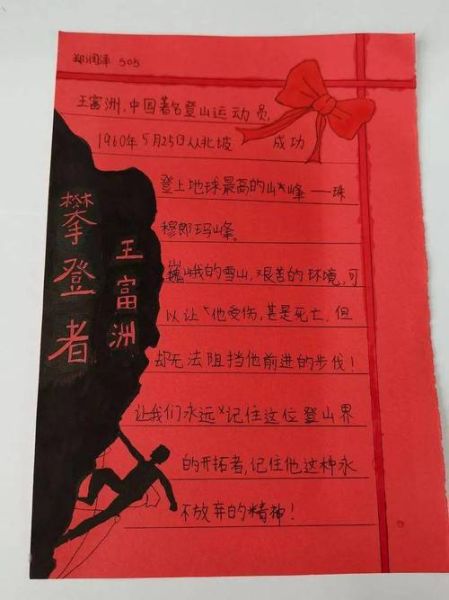 郑润泽 505
王富洲,中国著名登山运动员,
1960年5月25日从北坡 成功
登上地球最高的山峰——珠
穆郎玛峰。
巍峨的雪山,艰苦的环境,可
以让他受伤,甚是死亡,但
却无法阻挡他前进的步伐!
让我们永远记住这位登山界
的开拓者,记住他这种永
不放弃的精神!
攀登者
王富洲